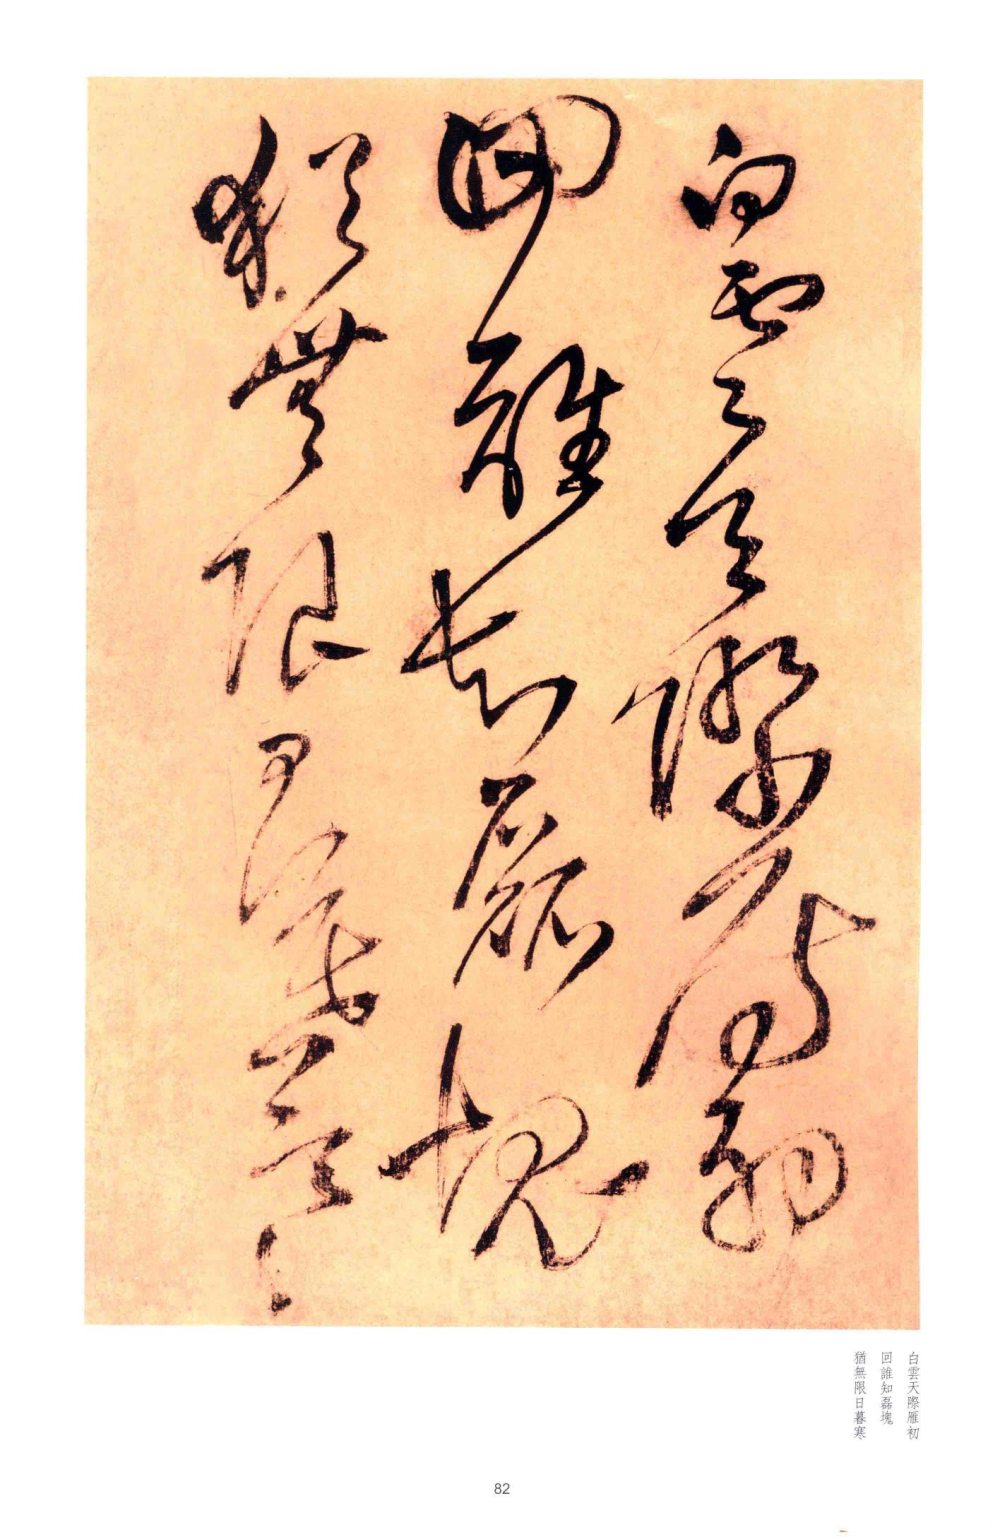 白雲天際雁初
回誰知磊塊
猶無限日暮寒
白雲天際雁初
回誰知磊塊
猶無限日暮寒
82